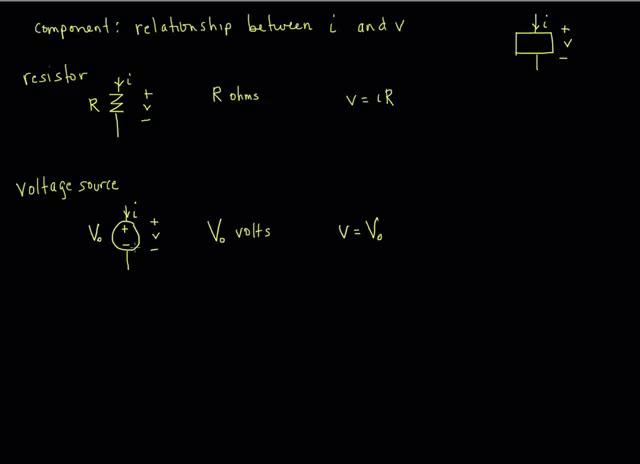 component: relationship between i and v
i
+
v
−
resistor
i
R
+
v
−
R ohms
v = iR
Voltage source
i
V₀
+
−
+
v
−
V₀ volts
v = V₀